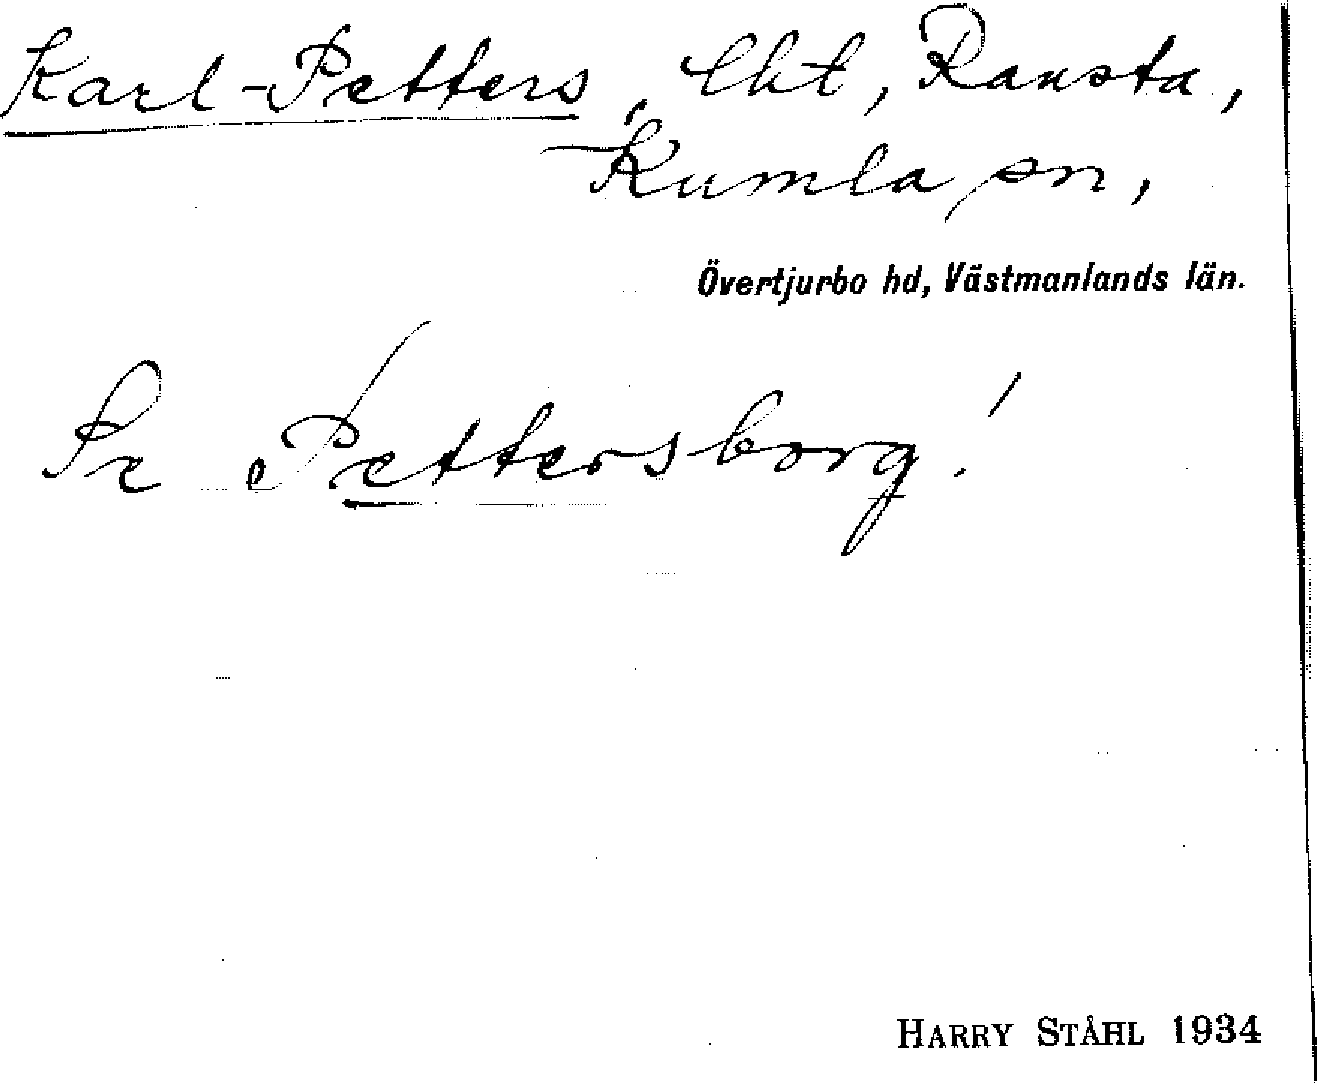 Karl-Petters, lht, Ransta,
Kumla sn,
Övertjurbo hd, Västmanlands län.
Se Pettersborg!
HARRY STÅHL 1934